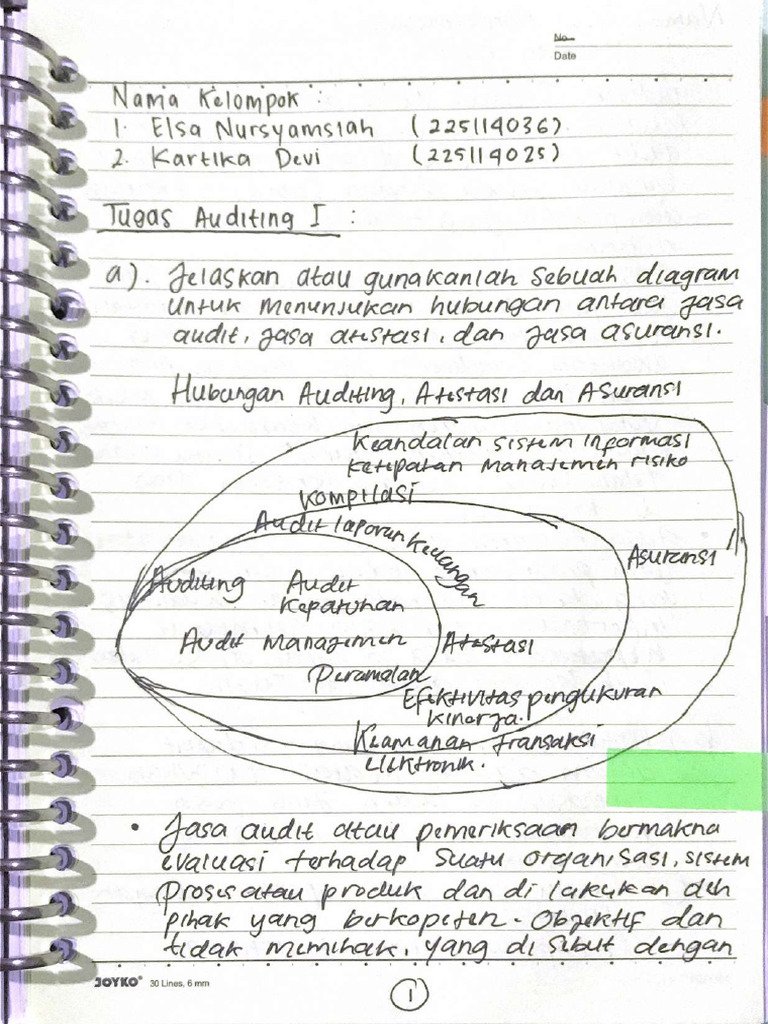 No
Date
Nama Kelompok :
1. Elsa Nursyamsiah (225114036)
2. Kartika Devi (225114025)
Tugas Auditing I :
a). Jelaskan atau gunakanlah sebuah diagram
untuk menunjukan hubungan antara jasa
audit, jasa atestasi, dan jasa asuransi.
Hubungan Auditing, Atestasi dan Asuransi
Keandalan sistem informasi
ketepatan manajemen risiko
Kompilasi
Audit laporan keuangan
Asuransi
Auditing
Audit
Kepatuhan
Audit manajemen
Atestasi
Peramalan
Efektivitas pengukuran
kinerja.
Keamanan transaksi
elektronik.
• Jasa audit atau pemeriksaan bermakna
evaluasi terhadap suatu organisasi, sistem
proses atau produk dan di lakukan oleh
pihak yang berkopeten. Objektif dan
tidak memihak, yang di sebut dengan
JOYKO® 30 Lines, 6 mm
1